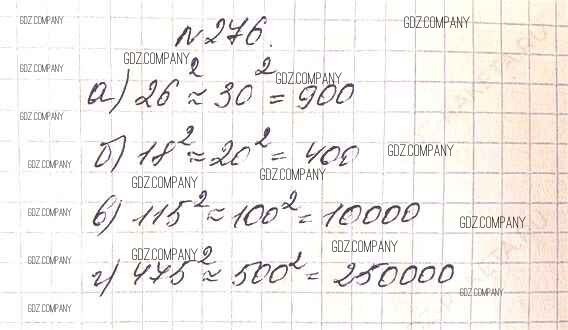 GDZ.COMPANY
№276.
GDZ.COMPANY
GDZ.COMPANY
GDZ.COMPANY
GDZ.COMPANY
а) 26² ≈ 30² = 900
GDZ.COMPANY
GDZ.COMPANY
б) 18² ≈ 20² = 400
GDZ.COMPANY
GDZ.COMPANY
GDZ.COMPANY
GDZ.COMPANY
в) 115² ≈ 100² = 10000
GDZ.COMPANY
GDZ.COMPANY
GDZ.COMPANY
GDZ.COMPANY
г) 475² ≈ 500² = 250000
GDZ.COMPANY
GDZ.COMPANY
GDZ.COMPANY
GDZ.COMPANY